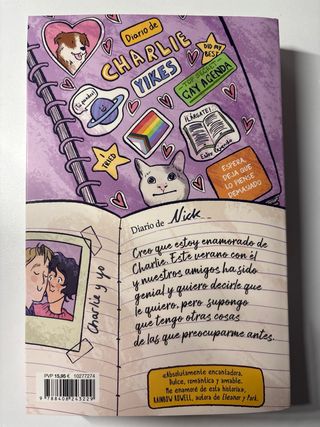 Diario de
CHARLIE
YIKES
DID MY
BEST
¡Tú puedes!
GAY AGENDA
¡LÁRGATE!
Estoy leyendo
I
TRIED
ESPERA,
DEJA QUE
LO PIENSE
DEMASIADO
Diario de Nick
Creo que estoy enamorado de
Charlie. Este verano con él
y nuestros amigos ha sido
genial y quiero decirle que
le quiero, pero supongo
que tengo otras cosas
de las que preocuparme antes.
Charlie y yo
PVP 15,95 € 10277274
9 788408 243229
«Absolutamente encantadora.
Dulce, romántica y amable.
Me enamoré de esta historia»,
RAINBOW ROWELL, autora de Eleanor y Park.